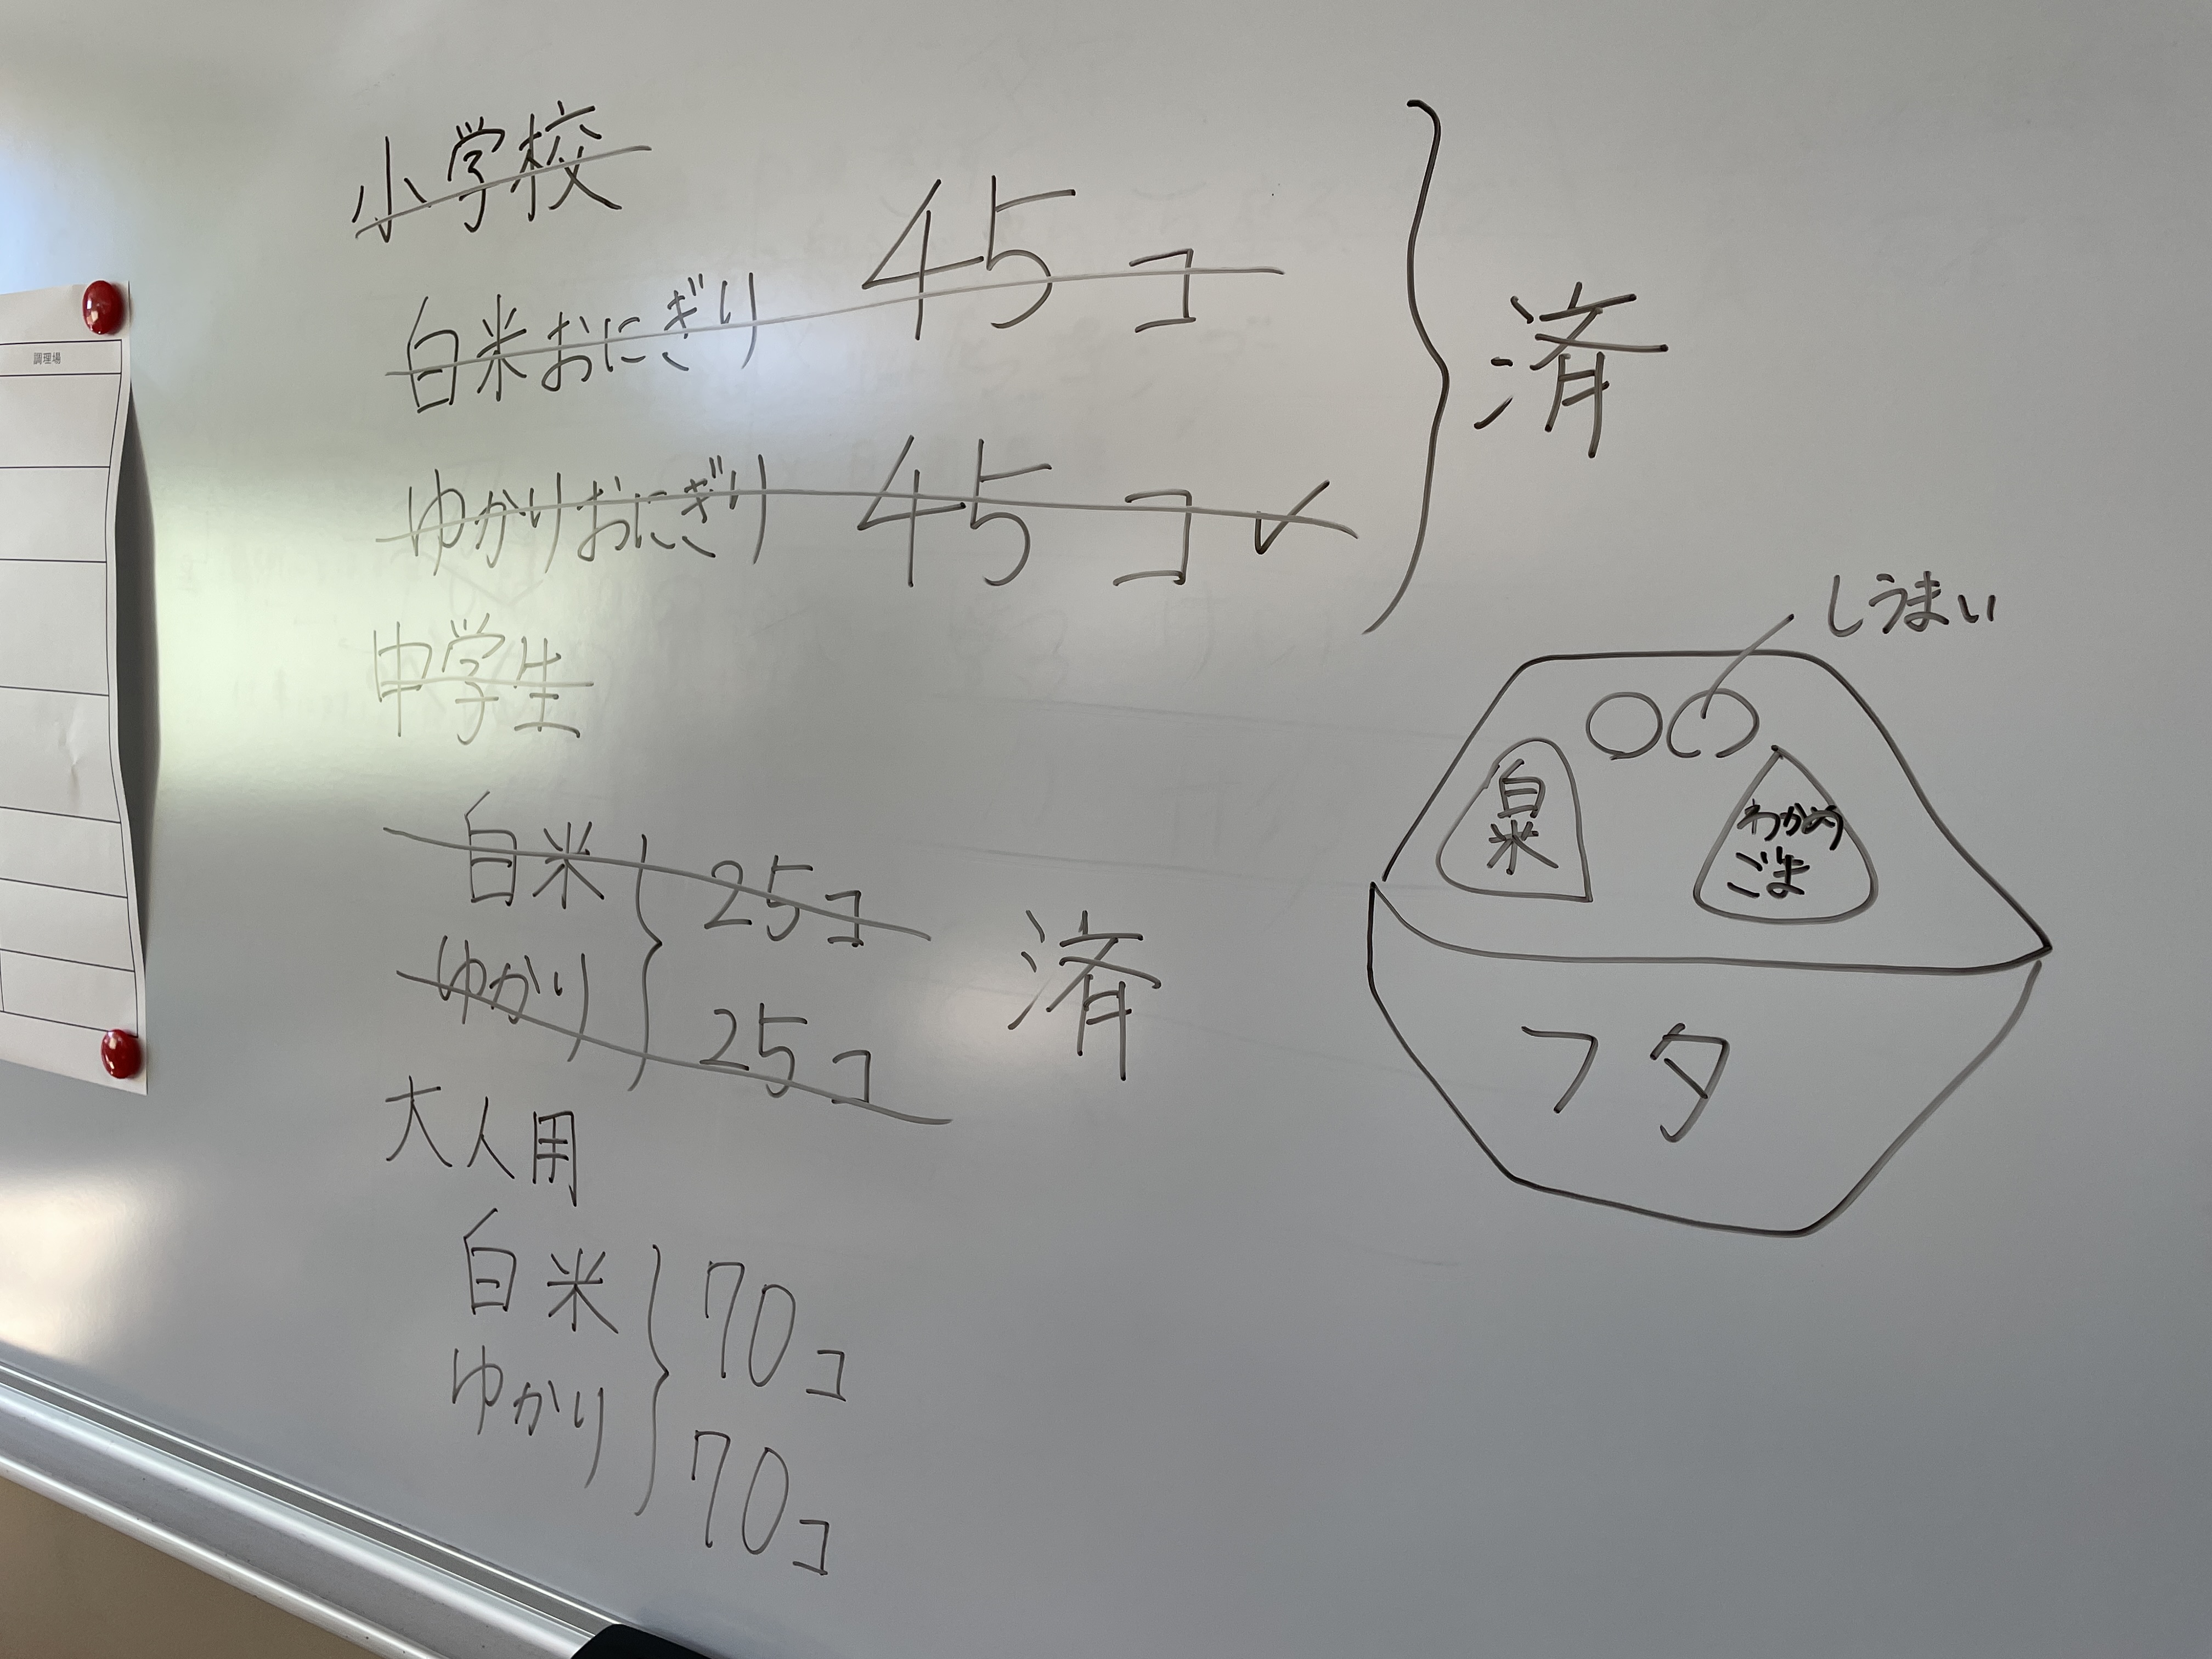 調理場
小学校
白米おにぎり 45コ
ゆかりおにぎり 45コ✓
済
中学生
白米 25コ
ゆかり 25コ
済
大人用
白米 70コ
ゆかり 70コ
しうまい
白米
わかめ
ごま
フタ